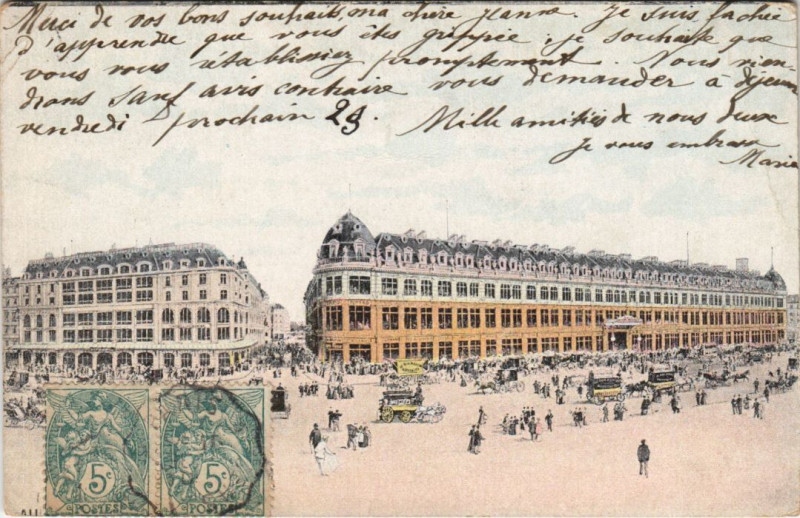 Merci de vos bons souhaits, ma chère Jeanne. Je suis fachée
d'apprendre que vous êtes grippée. je souhaite que
vous vous rétablissiez promptement. Nous vien-
drons sauf avis contraire vous demander à déjeun
vendredi prochain 29.
Mille amitiés de nous deux
Je vous embrasse
Marie
5c
POSTES
5c
POSTES
AU